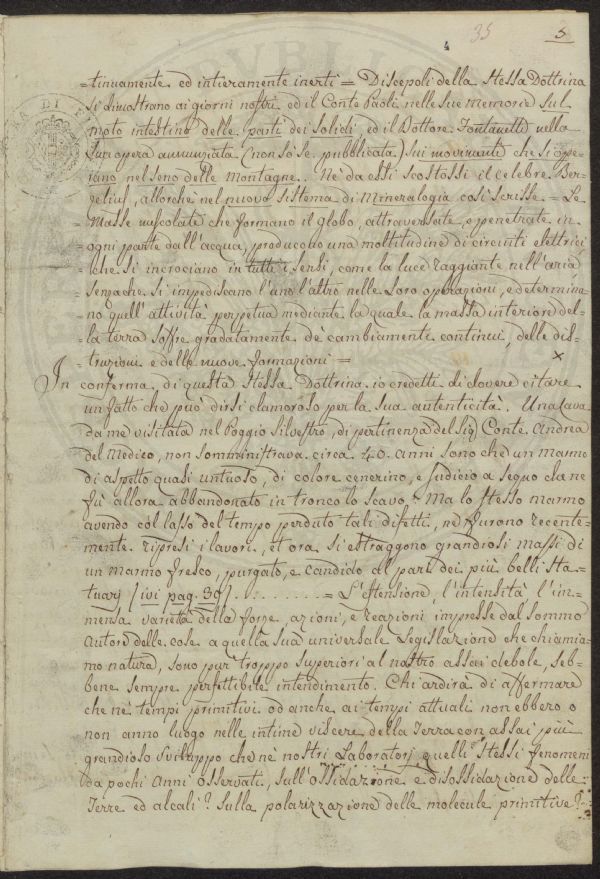 35 5
4
=tinuamente ed intieramente inerti = Discepoli della stessa Dottrina
si dimostrano ai giorni nostri ed il Conte Paoli nelle sue memorie sul
moto intestino delle parti dei solidi, ed il Dottore Fontanetti nella
sua opera annunziata (non so se pubblicata) sui movimenti che si ope=
rano nel seno delle Montagne. Nè da essi scostossi il celebre Ber=
zelius, allorchè nel nuovo sistema di Mineralogia così scrisse = Le
= Masse muscolate che formano il Globo, attraversate, e penetrate in
= ogni parte dall'acqua, producono una moltitudine di circuiti elettrici
= che si incrociano in tutti i sensi, come la luce raggiante nell'aria
= senzache si impediscano l'uno l'altro nelle loro operazioni, e determina=
= no quell'attività perpetua mediante la quale la massa interiore del=
= la terra soffre gradatamente de' cambiamenti continui, delle dis=
= truzioni e delle nuove formazioni =
In conferma di questa stessa Dottrina io credetti di dovere citare
un fatto che può dirsi clamoroso per la sua autenticità. Una Cava
da me visitata nel Poggio Silvestro, di pertinenza del Sig. Conte Andrea
del Medico, non somministrava circa 40. anni sono che un marmo
di aspetto quasi untuoso, di colore cenerino, e sudicio a segno che ne
fù allora abbandonato in tronco lo scavo. Ma lo stesso marmo
avendo col lasso del tempo perduto tali difetti, ne furono recente=
mente ripresi i lavori, et ora si estraggono grandiosi massi di
un marmo fresco, purgato, e candido al pare dei più belli Sta=
tuarj (ivi pag. 39). . . . . . . . . = L'estensione, l'intensità l'im=
mensa varietà delle forze, azioni, e reazioni impresse dal sommo
Autore delle cose a quella sua universale Legislazione che chiamia=
mo natura, sono pur troppo superiori al nostro assai debole, seb=
bene sempre perfettibile intendimento. Chi ardirà di affermare
che ne tempi primitivi od anche ai tempi attuali non ebbero o
non anno luogo nelle intime viscere della Terra con assai più
grandioso sviluppo che nè nostri Laboratorj quelli stessi fenomeni
da pochi anni osservati, sull'ossidazione e disossidazione delle
Terre ed alcali? Sulla polarizzazione delle molecule primitive?